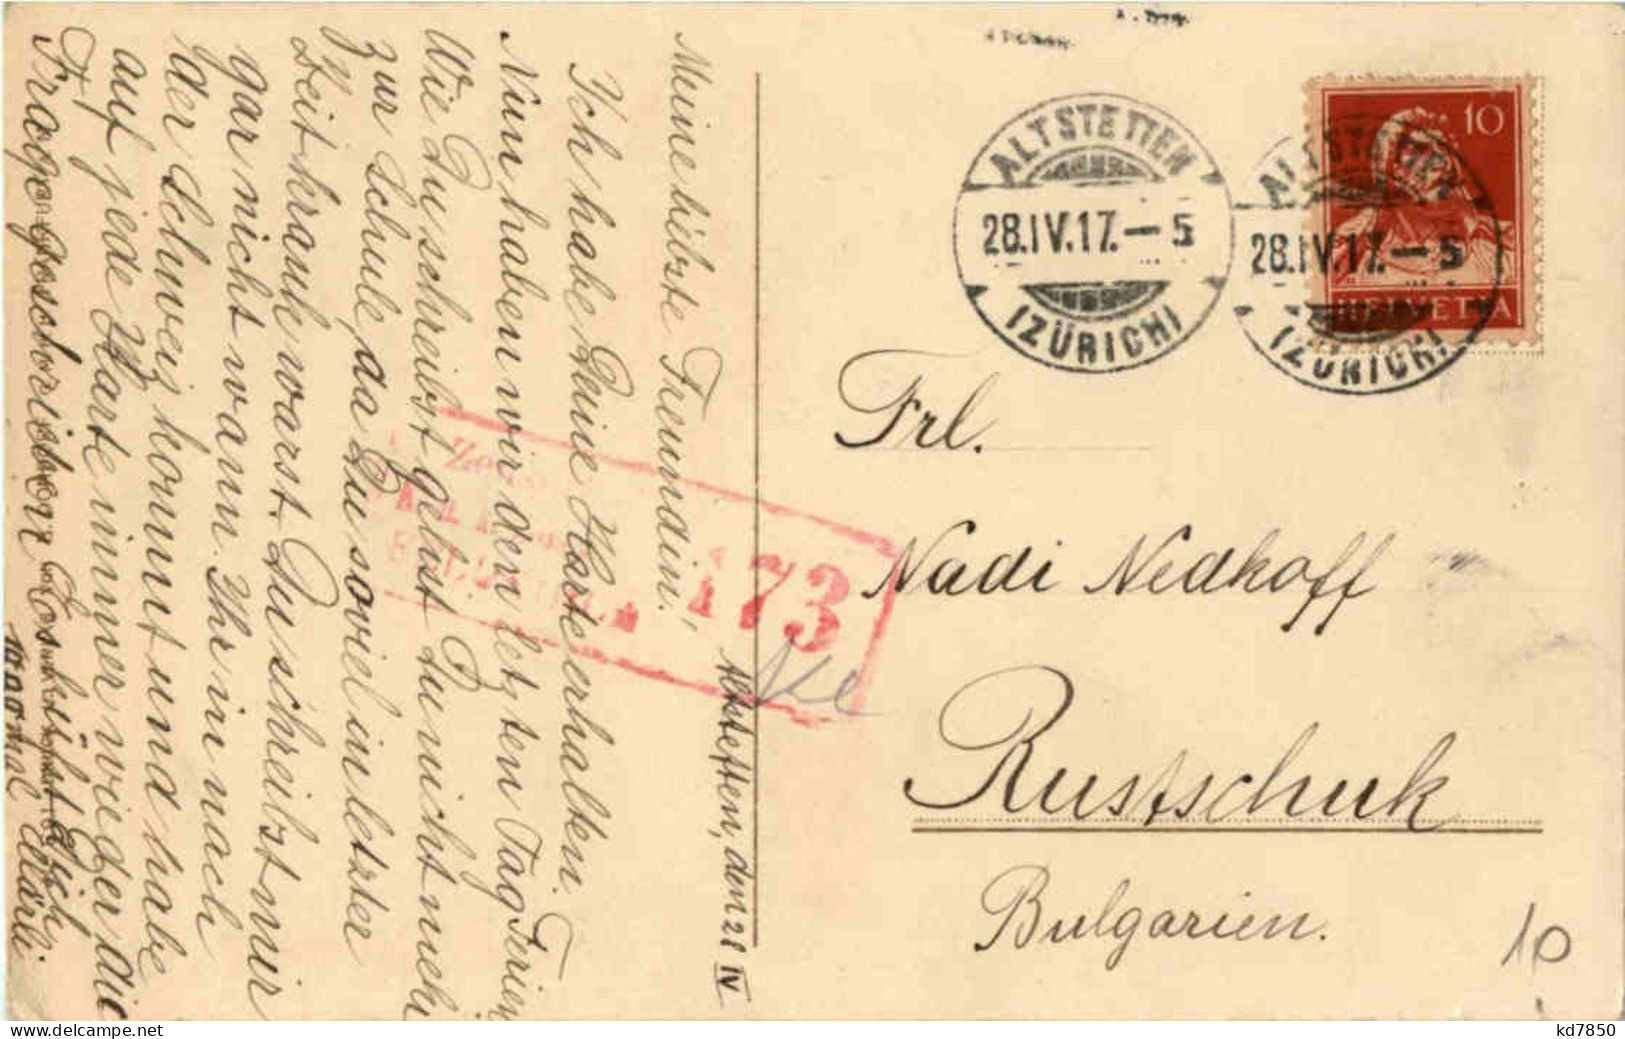 Altstetten, den 28 IV
Meine liebste Freundin,
Ich habe Deine Karte erhalten.
Nun haben wir den letzten Tag Ferien
Wie Du schreibst gehst Du nicht mehr
zur Schule, da Du soviel in letzter
Zeit krank warst. Du schreibst mir
gar nicht wann Ihr in nach
der Schweiz kommt und habe
auf jede Karte immer wieder die
Frage geschrieben. Es küsst Dich
1000 mal Clärli.
ALTSTETTEN
28.IV.17.-5
(ZÜRICH)
ALTSTETTEN
28.IV.17.-5
(ZÜRICH)
10
HELVETIA
173
Frl.
Nadi Nedkoff
Rustschuk
Bulgarien.
10
kd7850